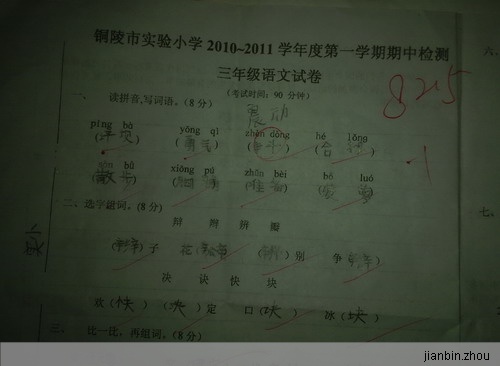 铜陵市实验小学 2010~2011 学年度第一学期期中检测
三年级语文试卷
(考试时间：90 分钟)
82.5
一、 读拼音,写词语。(8 分)
震动
píng bà yǒng qì zhèn dòng hé lǒng
(平坝) (勇气) ( ) (合拢)
sàn bù xiōng pú zhǔn bèi bō luó
(散步) (胸脯) (准备) ( )
二、选字组词。(8 分)
辩 辫 辨 瓣
(辫)子 花(瓣) (辨)别 争(辩)
决 诀 快 块
欢(快) (决)定 口(诀) 冰(块)
三、 比一比，再组词。(8 分)
六、
七、
jianbin.zhou